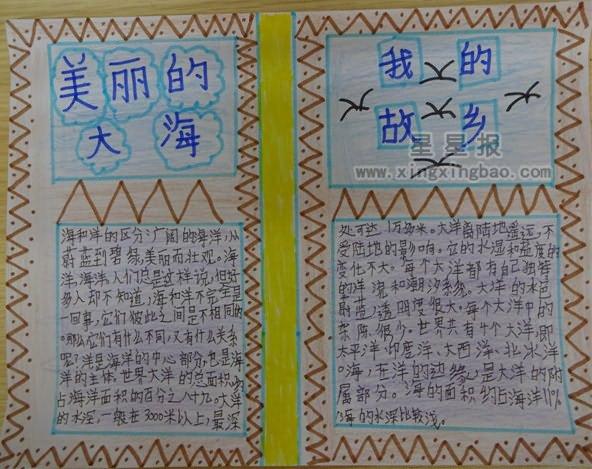 美丽的
大海
海和洋的区分:广阔的海洋,从
蔚蓝到碧绿,美丽而壮观。海
洋,海洋,人们总是这样说,但好
多人却不知道,海和洋不完全是
一回事,它们彼此之间是不相同的
。那么它们有什么不同,又有什么关系
呢?洋是海洋的中心部分,也是海
洋的主体。世界大洋的总面积,
占海洋面积的百分之八十九。大洋
的水深,一般在3000米以上,最深
我的
故乡
星星报
www.xingxingbao.com
处可达1万多米。大洋离陆地遥远,不
受陆地的影响。它的水温和盐度的
变化不大。每个大洋都有自己独特
的洋流和潮汐系统。大洋的水色
蔚蓝,透明度很大。每个大洋中的
杂质很少。世界共有4个大洋,即
太平洋、印度洋、大西洋、北冰洋
。海,在洋的边缘,是大洋的附
属部分。海的面积约占海洋11%
,海的水深比较浅。